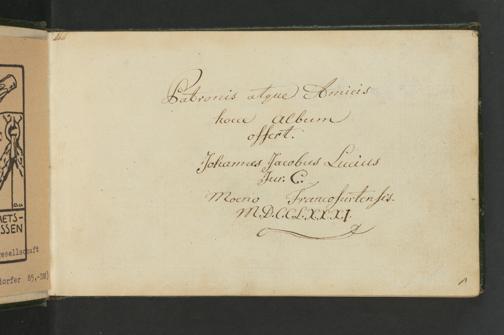 Patronis atque Amicis
hocce Album
offert.
Johannes Jacobus Lucius
Jur. C.
Moeno Francofurtensis.
M.D.C.C.L.X.X.X.I.
ETS-
SSEN
esellschaft
dorfer 85,-DM)